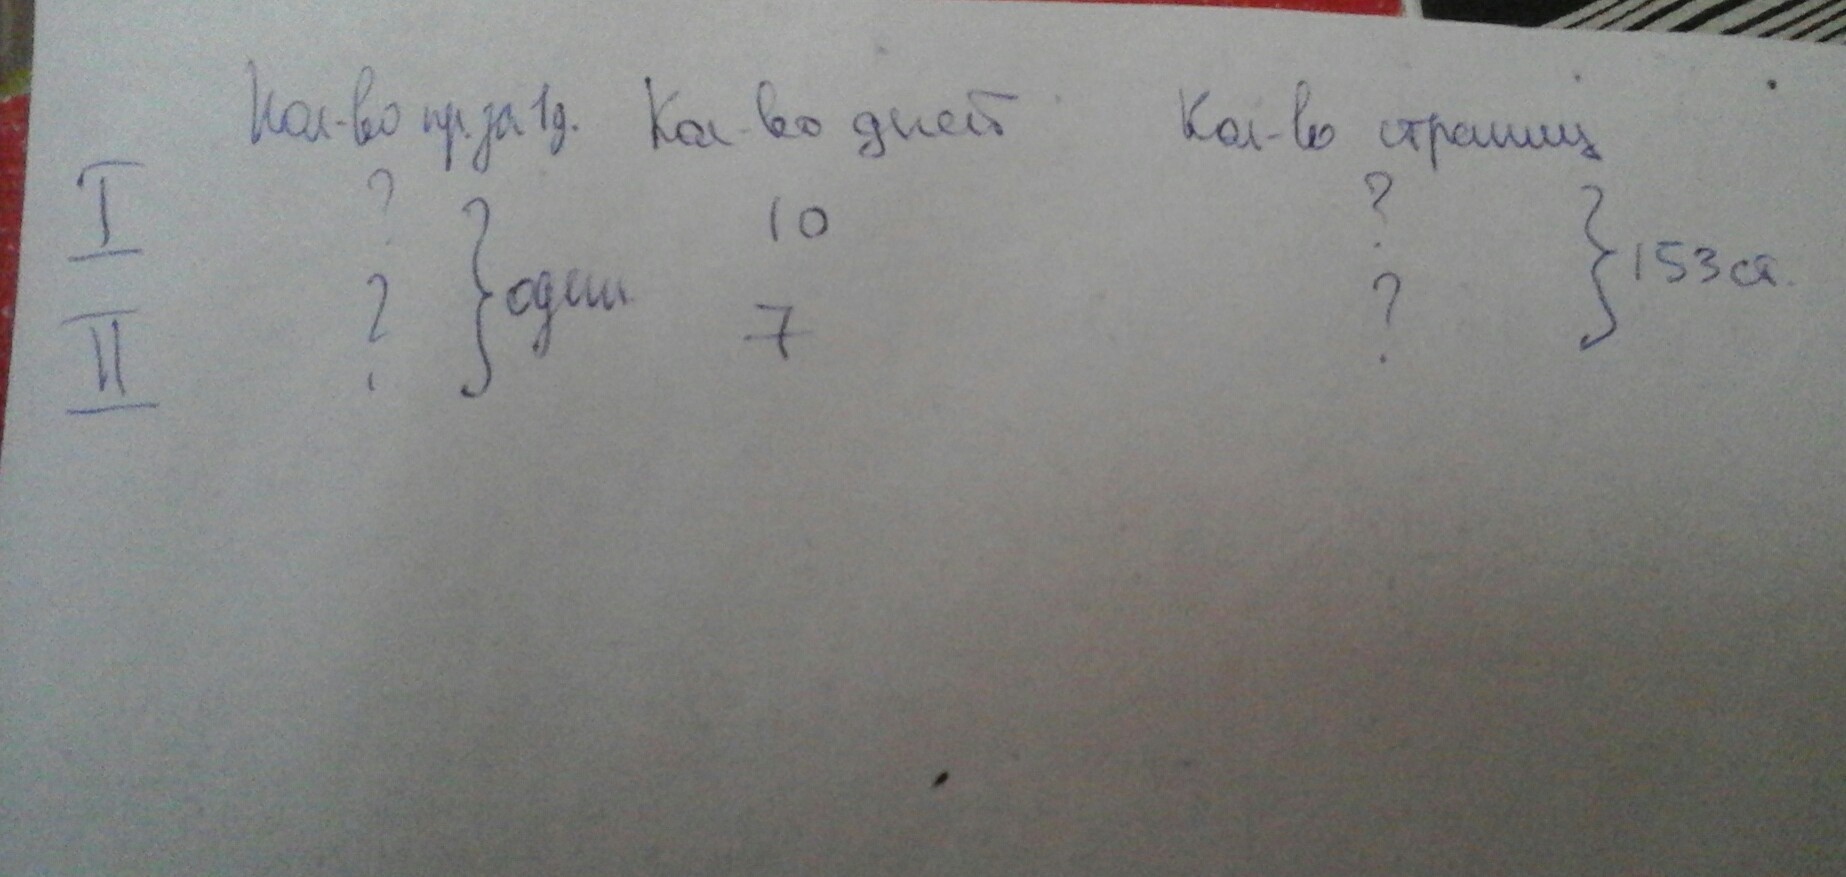 Кол-во пр. за 1д. Кол-во дней Кол-во страниц
I ? 10 ?
} один. } 153 ст.
II ? 7 ?